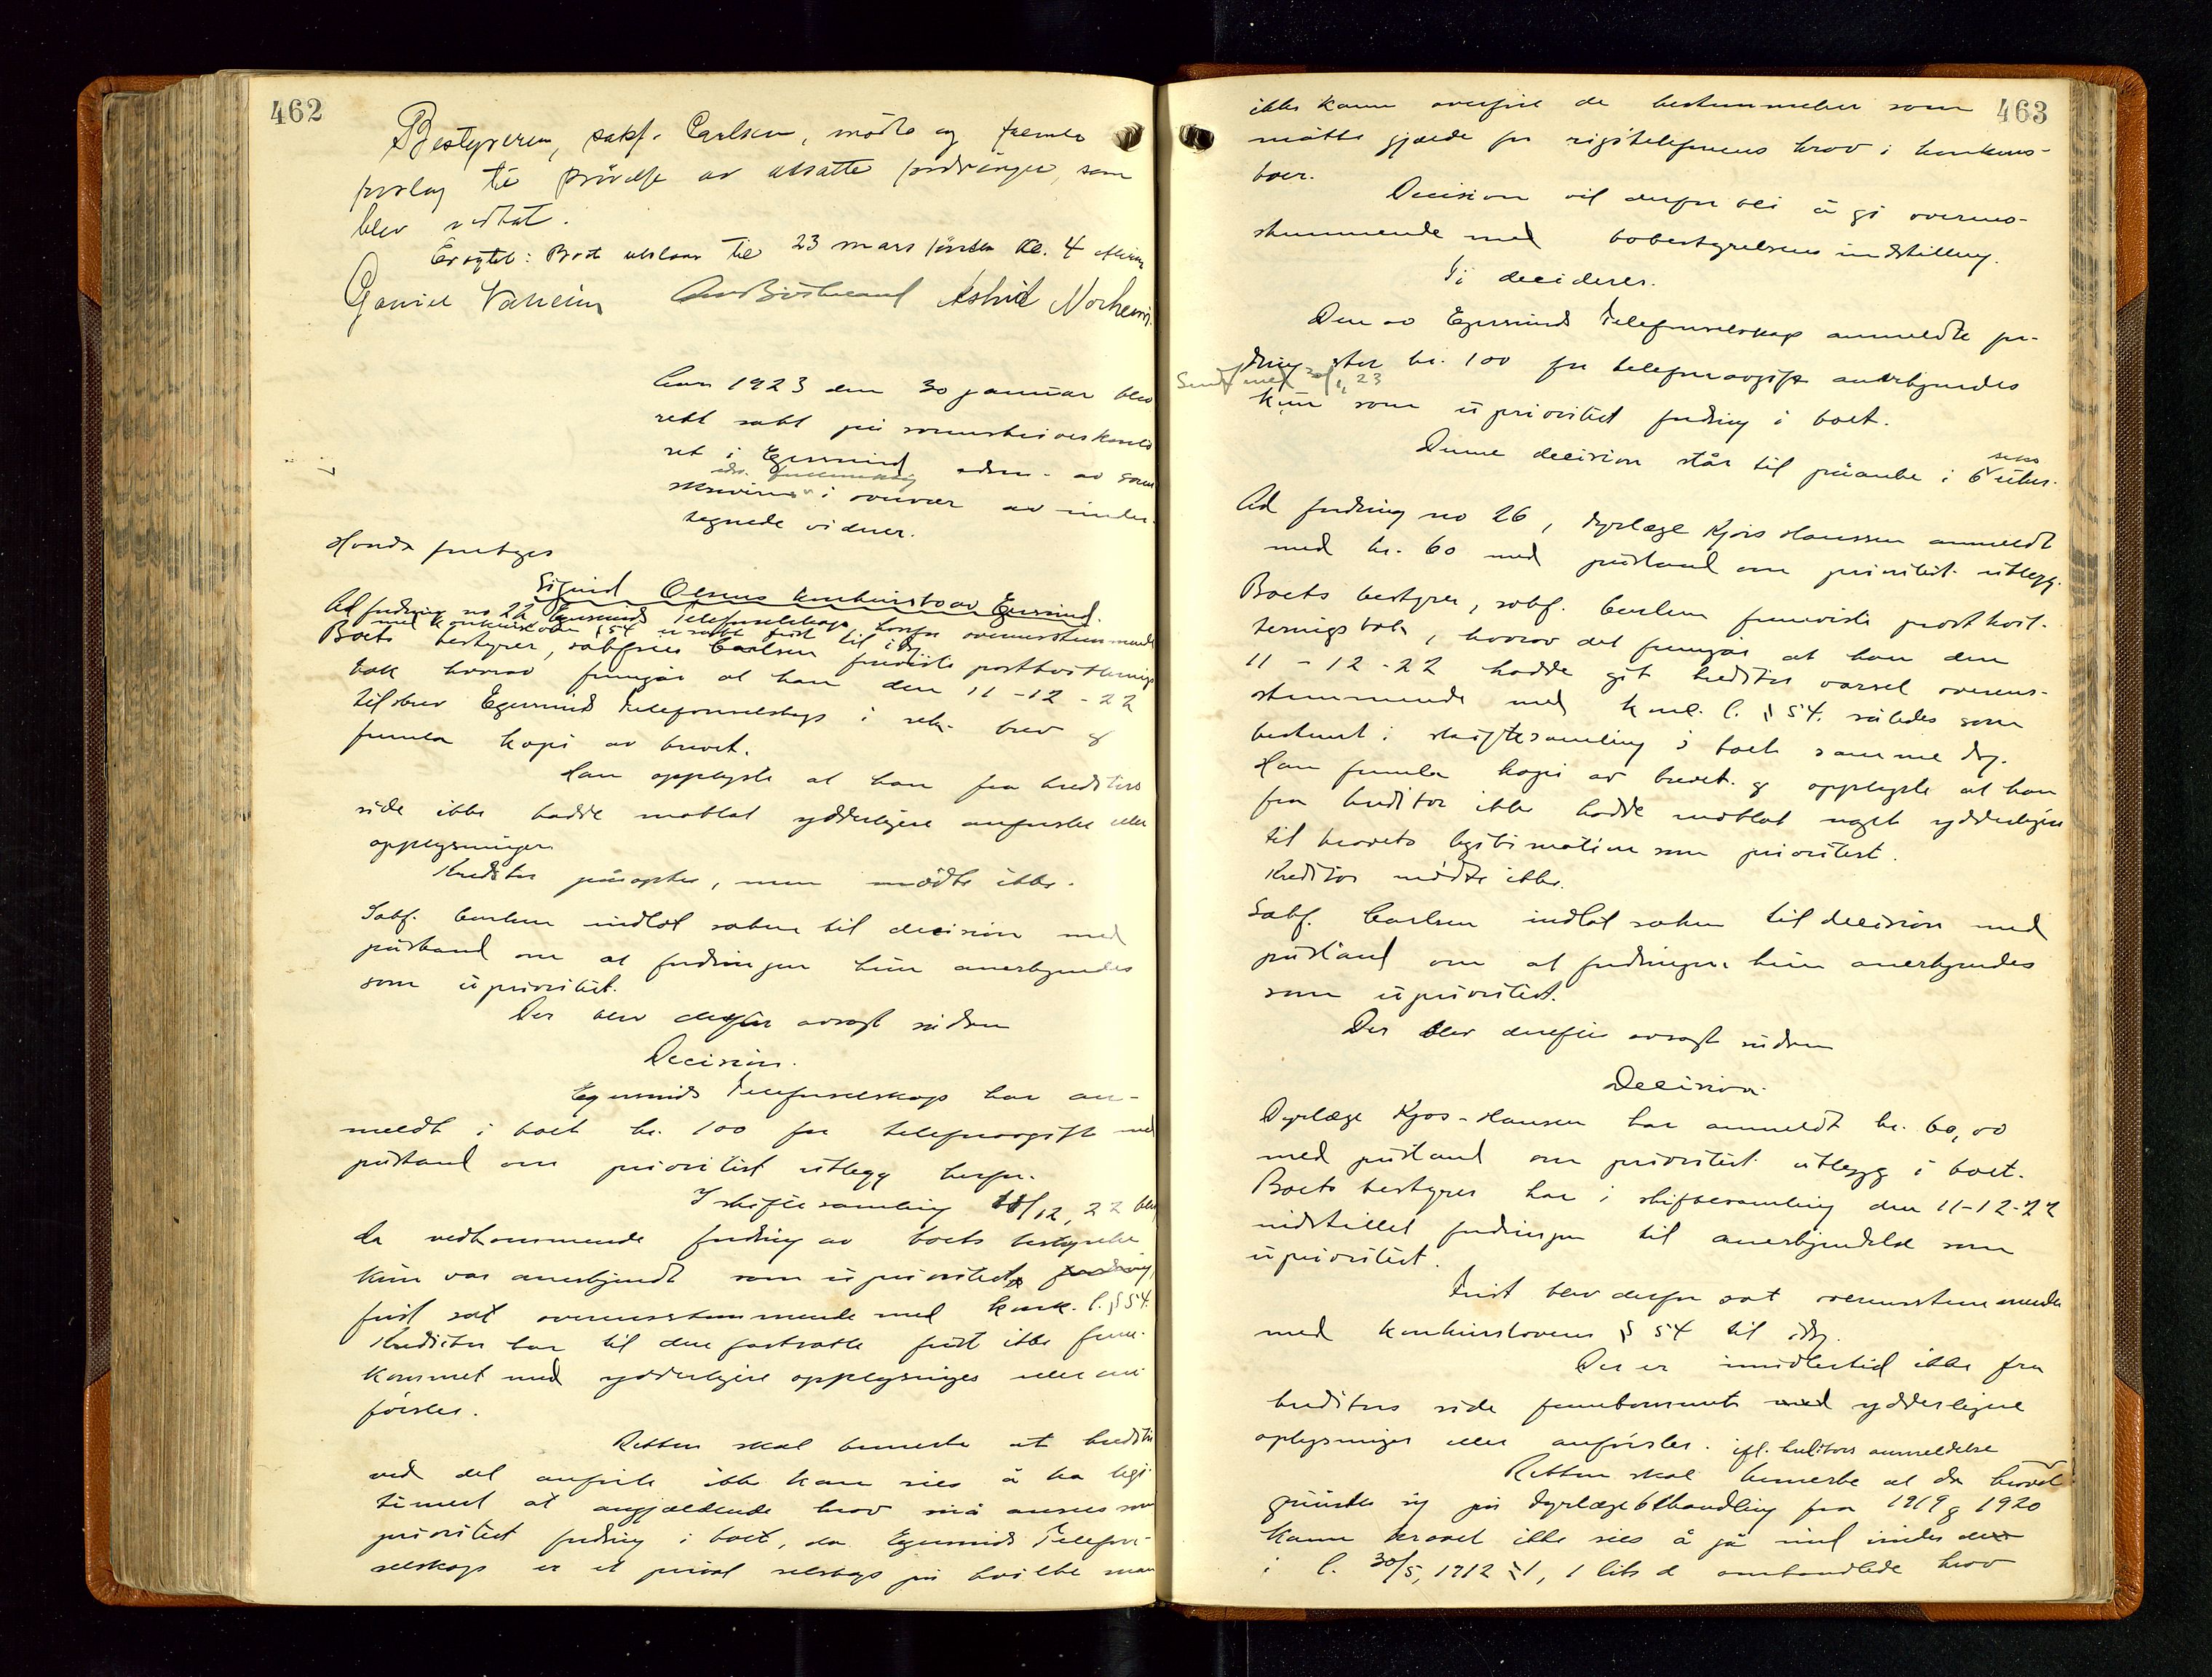 462
Bestyreren, sakf. Carlsen, mødte og fremla
forslag til prøvelse av utsatte fordringer, som
blev vedtat.
Eragtet: Boet utslaas til 23 mars førstk kl. 4 efterm
Gavriel Vanheim Astrid Norheim.
Aar 1923 den 30 januar blev
rett satt på sorenskriverkonto
ret i Egersund adm. av soren
skriveren i overvær av under-
tegnede vidner.
Hvorda foretoges
Sigurd Olsens konkursbo av Egersund.
Ad fordring no 22 Egersunds Telefonselskap, hvorfor overensstemmende
med konkursloven § 54 er satt frist til idag
Boets bestyrer, sakfører Carlsen fremviste postkvitterings
bok hvorav fremgår at han den 11-12-22
tilskrev Egersunds Telefonselskap i rek. brev og
fremla kopi av brevet.
Han opplyste at han fra kreditors
side ikke hadde mottat ydderligere anførsler eller
opplysninger.
Kreditor påroptes, men mødte ikke.
Sakf. Carlsen indlot saken til decision med
påstand om at fordringen kun anerkjendes
som uprioritert.
Der blev derefter avsagt sådan
Decision.
Egersunds Telefonselskap har an-
meldt i boet kr. 100 for telefonavgift med
påstand om prioritert utlegg herfor.
I skiftesamling 11/12, 22 blev
da vedkommende fordring av boets bestyrelse
kun var anerkjendt som uprioritert fordring,
frist sat overensstemmende med konk. l. § 54.
Kreditor har til den fastsatte frist ikke frem-
kommet med ydderligere opplysninger eller an-
førsler.
Retten skal bemerke at kreditor
ved det anførte ikke kan sies å ha legi-
timert at angjældende krav må ansees som
prioritert fordring i boet, da Egersunds Telefon-
selskap er et privat selskap på hvilke man
463
ikke kann overføre de bestemmelser som
måtte gjælde for rigstelefonens krav i konkurs-
boer.
Decision vil derfor bli å gi overens-
stemmende med bobestyrelsens indstilling.
Ti decideres.
Den av Egersunds Telefonselskap anmeldte for-
dring stor kr. 100 for telefonavgift anerkjendes
Sendt med 30/1, 23
kun som uprioritert fordring i boet.
Denne decision står til påanke i 6 seks uker.
Ad fordring no 26, dyrlæge Kjos Hanssen anmeldt
med kr. 60 med påstand om prioritert utlegg.
Boets bestyrer, sakf. Carlsen fremviste postkvit-
teringsbok, hvorav det fremgår at han den
11-12-22 hadde git kreditor varsel overens-
stemmende med konk. l. § 54. således som
bestemt i skiftesamling i boet samme dag.
Han fremla kopi av brevet og opplyste at han
fra kreditor ikke hadde mottat noget ydderligere
til kravets legitimation som prioritert.
Kreditor mødte ikke.
Sakf. Carlsen indlot saken til decision med
påstand om at fordringen kun anerkjendes
som uprioritert.
Der blev derefter avsagt sådan
Decision.
Dyrlæge Kjos-Hanssen har anmeldt kr. 60,00
med påstand om prioritert utlegg i boet.
Boets bestyrer har i skiftesamling den 11-12-22
indstillet fordringen til anerkjendelse som
uprioritert.
Frist blev derfor sat overensstemmende
med konkurslovens § 54 til idag.
Der er imidlertid ikke fra
kreditors side fremkommet med ydderligere
oplysninger eller anførsler.
Retten skal bemerke at da kravet ifl. kreditors anmeldelse
grunder sig på dyrlægebehandling fra 1919 og 1920
kann kravet ikke sies å gå ind under den
i l. 30/5, 1912 § 1, 1 litr d omhandlede krav